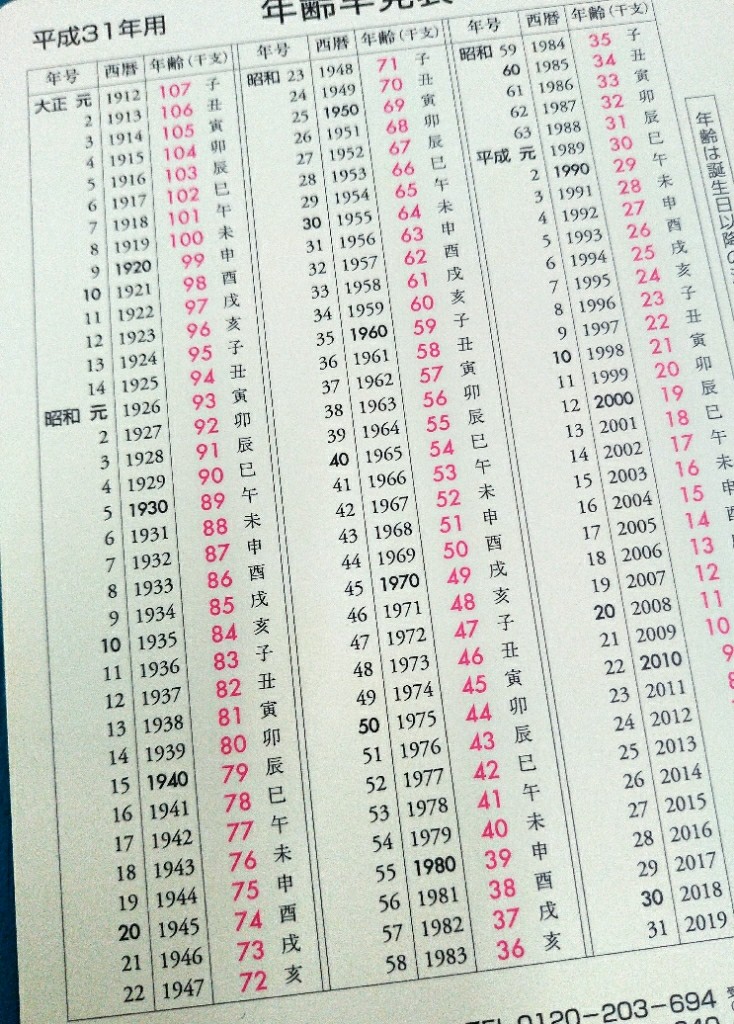 平成31年用
年齢早見表
年号 西暦 年齢(干支)
大正 元 1912 107 子
2 1913 106 丑
3 1914 105 寅
4 1915 104 卯
5 1916 103 辰
6 1917 102 巳
7 1918 101 午
8 1919 100 未
9 1920 99 申
10 1921 98 酉
11 1922 97 戌
12 1923 96 亥
13 1924 95 子
14 1925 94 丑
昭和 元 1926 93 寅
2 1927 92 卯
3 1928 91 辰
4 1929 90 巳
5 1930 89 午
6 1931 88 未
7 1932 87 申
8 1933 86 酉
9 1934 85 戌
10 1935 84 亥
11 1936 83 子
12 1937 82 丑
13 1938 81 寅
14 1939 80 卯
15 1940 79 辰
16 1941 78 巳
17 1942 77 午
18 1943 76 未
19 1944 75 申
20 1945 74 酉
21 1946 73 戌
22 1947 72 亥
年号 西暦 年齢(干支)
昭和 23 1948 71 子
24 1949 70 丑
25 1950 69 寅
26 1951 68 卯
27 1952 67 辰
28 1953 66 巳
29 1954 65 午
30 1955 64 未
31 1956 63 申
32 1957 62 酉
33 1958 61 戌
34 1959 60 亥
35 1960 59 子
36 1961 58 丑
37 1962 57 寅
38 1963 56 卯
39 1964 55 辰
40 1965 54 巳
41 1966 53 午
42 1967 52 未
43 1968 51 申
44 1969 50 酉
45 1970 49 戌
46 1971 48 亥
47 1972 47 子
48 1973 46 丑
49 1974 45 寅
50 1975 44 卯
51 1976 43 辰
52 1977 42 巳
53 1978 41 午
54 1979 40 未
55 1980 39 申
56 1981 38 酉
57 1982 37 戌
58 1983 36 亥
年号 西暦 年齢(干支)
昭和 59 1984 35 子
60 1985 34 丑
61 1986 33 寅
62 1987 32 卯
63 1988 31 辰
平成 元 1989 30 巳
2 1990 29 午
3 1991 28 未
4 1992 27 申
5 1993 26 酉
6 1994 25 戌
7 1995 24 亥
8 1996 23 子
9 1997 22 丑
10 1998 21 寅
11 1999 20 卯
12 2000 19 辰
13 2001 18 巳
14 2002 17 午
15 2003 16 未
16 2004 15 申
17 2005 14 酉
18 2006 13
19 2007 12
20 2008 11
21 2009 10
22 2010 9
23 2011 8
24 2012
25 2013
26 2014
27 2015
28 2016
29 2017
30 2018
31 2019
年齢は誕生日以降の
TEL 0120-203-694